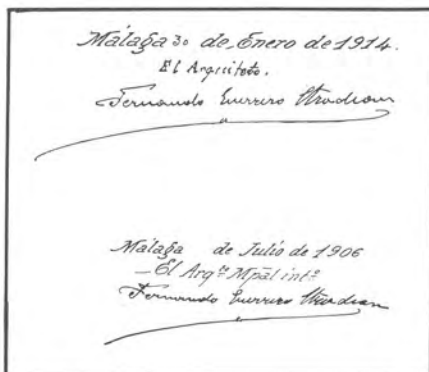 Málaga 30 de Enero de 1914.
El Arquitecto.
Fernando Guerrero Strachan
Málaga de Julio de 1906
— El Arqº Mpal intº
Fernando Guerrero Strachan